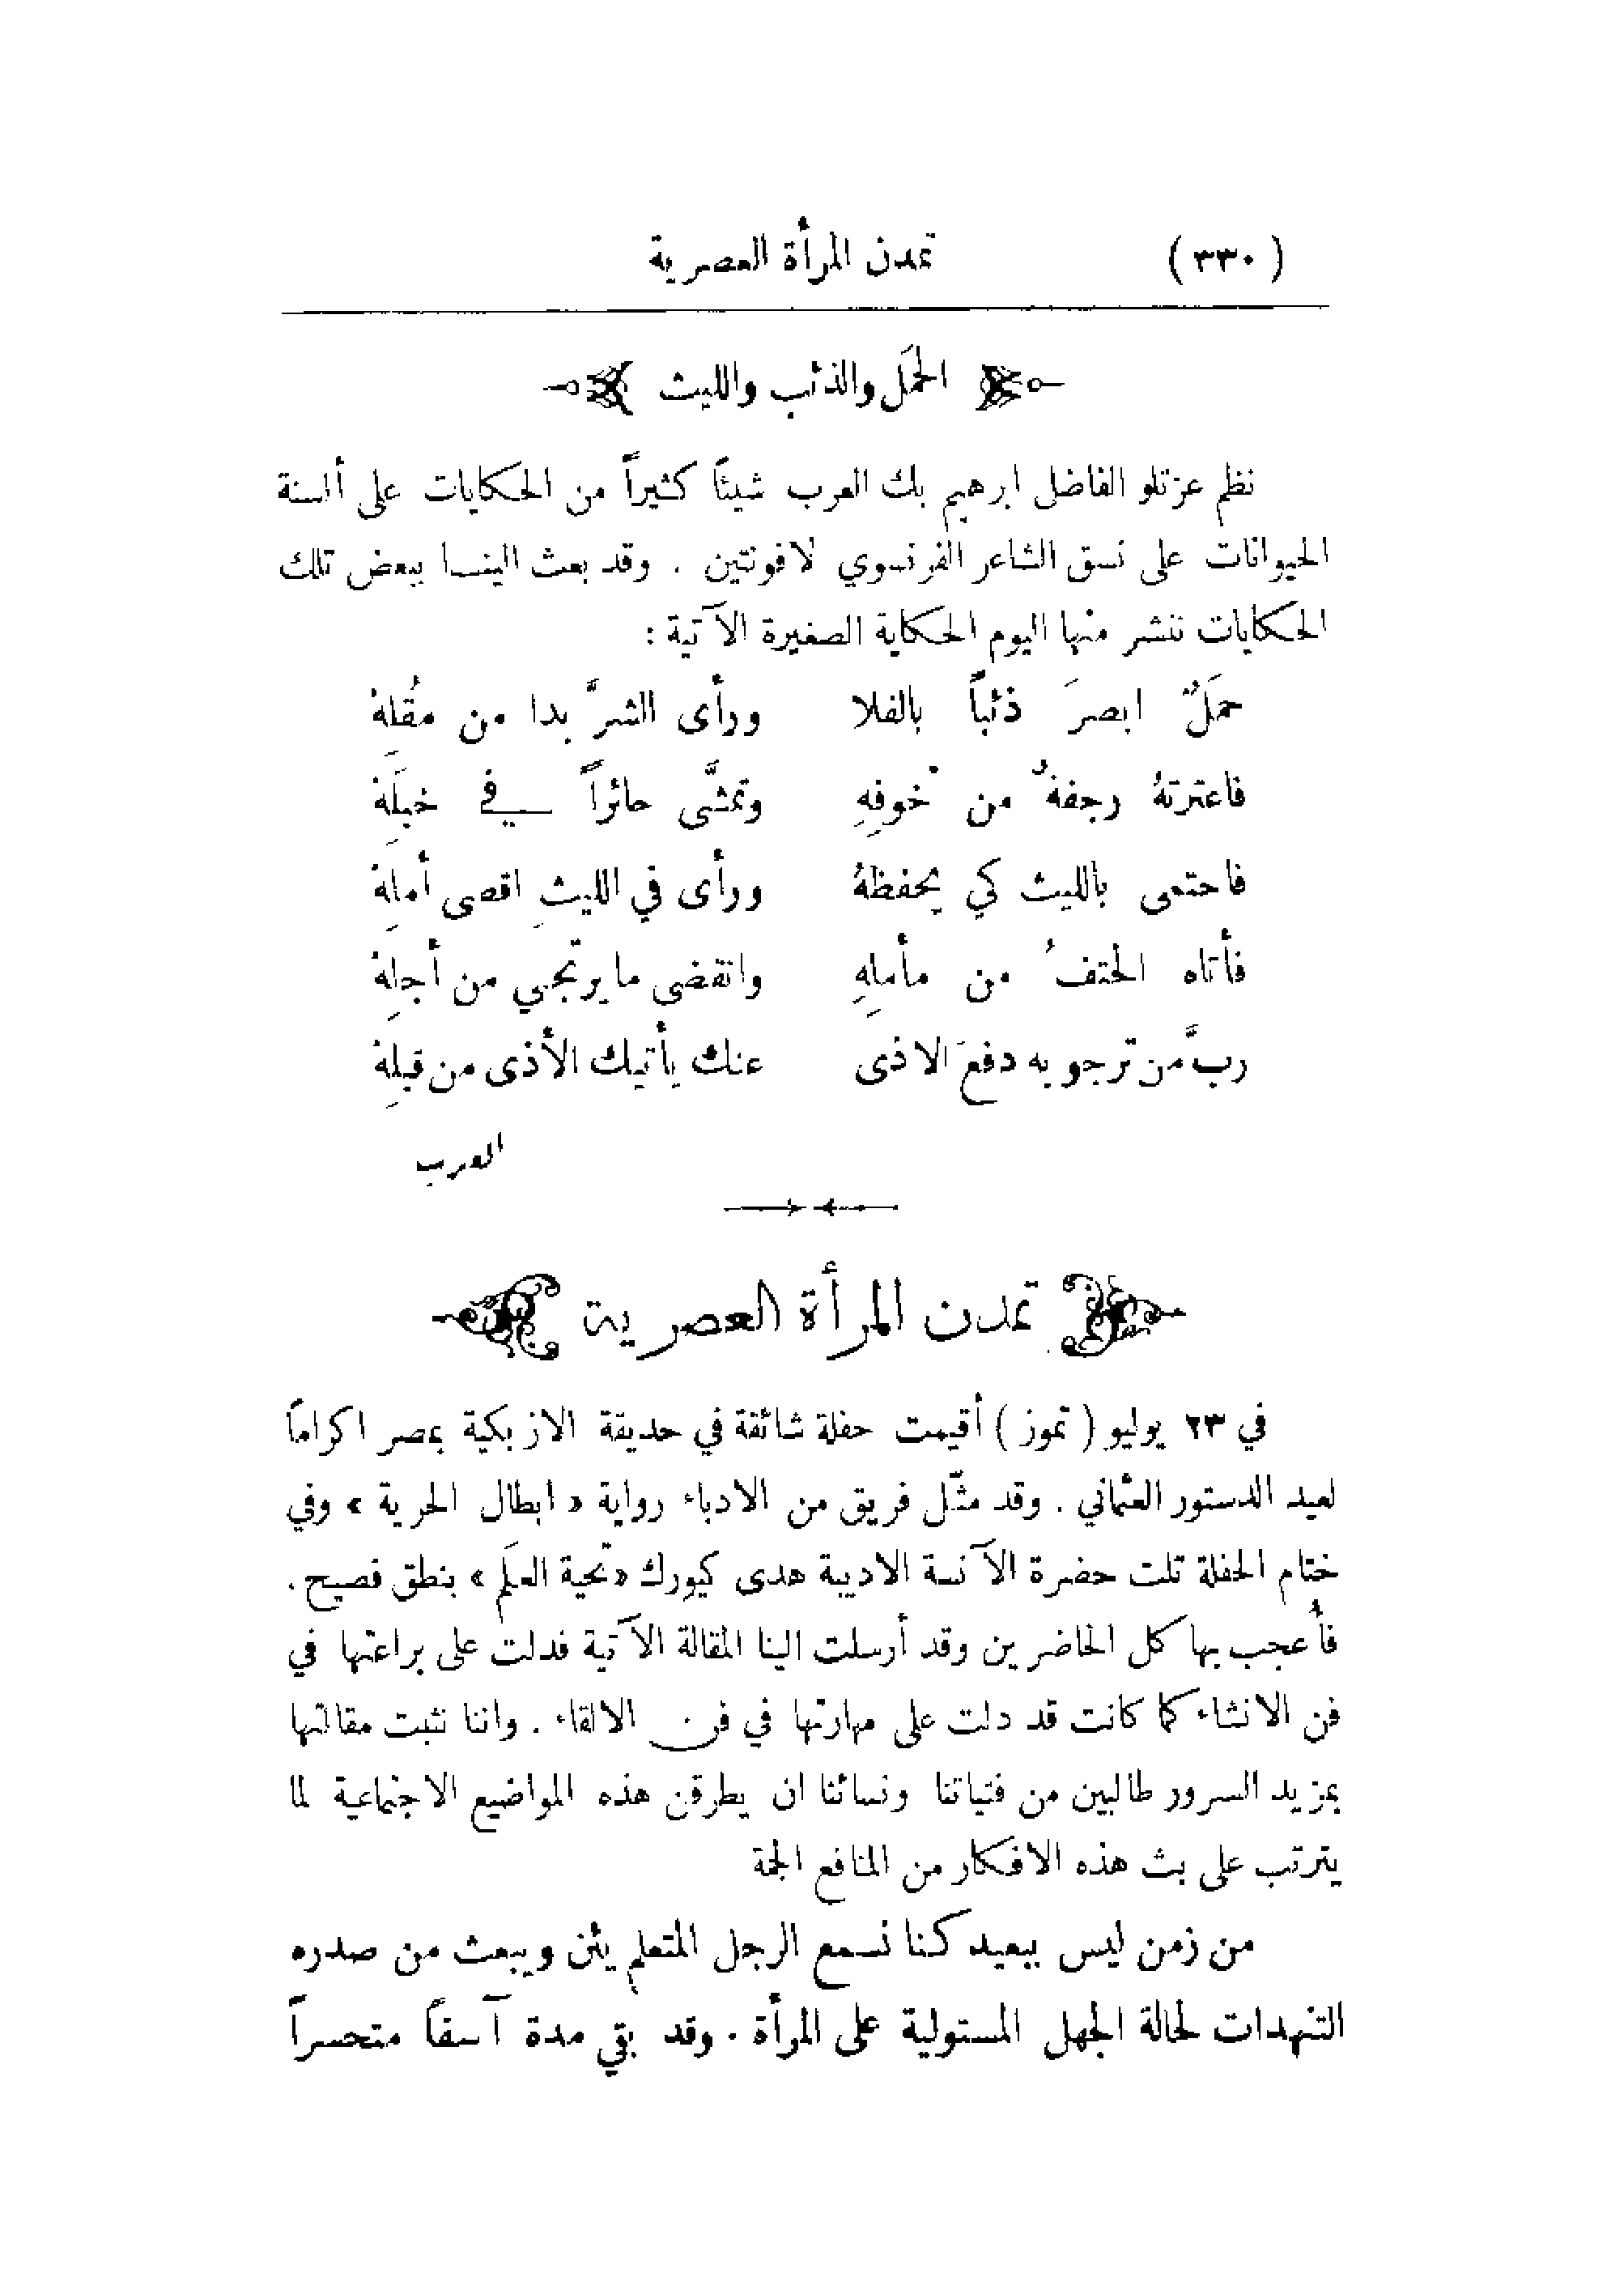 ( ٣٣٠ ) تمدن المرأة العصرية
الحَمَل والذئب والليث
نظم عزتلو الفاضل ابرهيم بك العرب شيئًا كثيراً من الحكايات على ألسنة
الحيوانات على نسق الشاعر الفرنسوي لافونتين . وقد بعث الينا ببعض تلك
الحكايات ننشر منها اليوم الحكاية الصغيرة الآتية :
حمَلٌ ابصرَ ذئباً بالفلا ورأى الشرَّ بدا من مُقَلِهْ
فاعترتهُ رجفةٌ من خوفِهِ وتمشَّى حائراً في خبَلِهْ
فاحتمى بالليث كي يحفظهُ ورأى في الليثِ اقصى أملِهْ
فأتاه الحتفُ من مأملِهِ وانقضى ما يرتجي من أجلِهْ
ربَّ من ترجو به دفعَ الاذى عنك يأتيك الأذى من قبلِهْ
العرب
تمدن المرأة العصرية
في ٢٣ يوليو ( تموز ) أقيمت حفلة شائقة في حديقة الازبكية بمصر اكراماً
لعيد الدستور العثماني . وقد مثّل فريق من الادباء رواية « ابطال الحرية » وفي
ختام الحفلة تلت حضرة الآنسة الاديبة هدى كيورك « تحية العلَم » بنطق فصيح .
فأُعجب بها كل الحاضرين وقد أرسلت الينا المقالة الآتية فدلت على براعتها في
فن الانشاء كما كانت قد دلت على مهارتها في فن الالقاء . واننا نثبت مقالتها
بمزيد السرور طالبين من فتياتنا ونسائنا ان يطرقن هذه المواضيع الاجتماعية لما
يترتب على بث هذه الافكار من المنافع الجمة
من زمن ليس ببعيد كنا نسمع الرجل المتعلم يئن ويبعث من صدره
التنهدات لحالة الجهل المستولية على المرأة . وقد بقي مدة آسفاً متحسراً